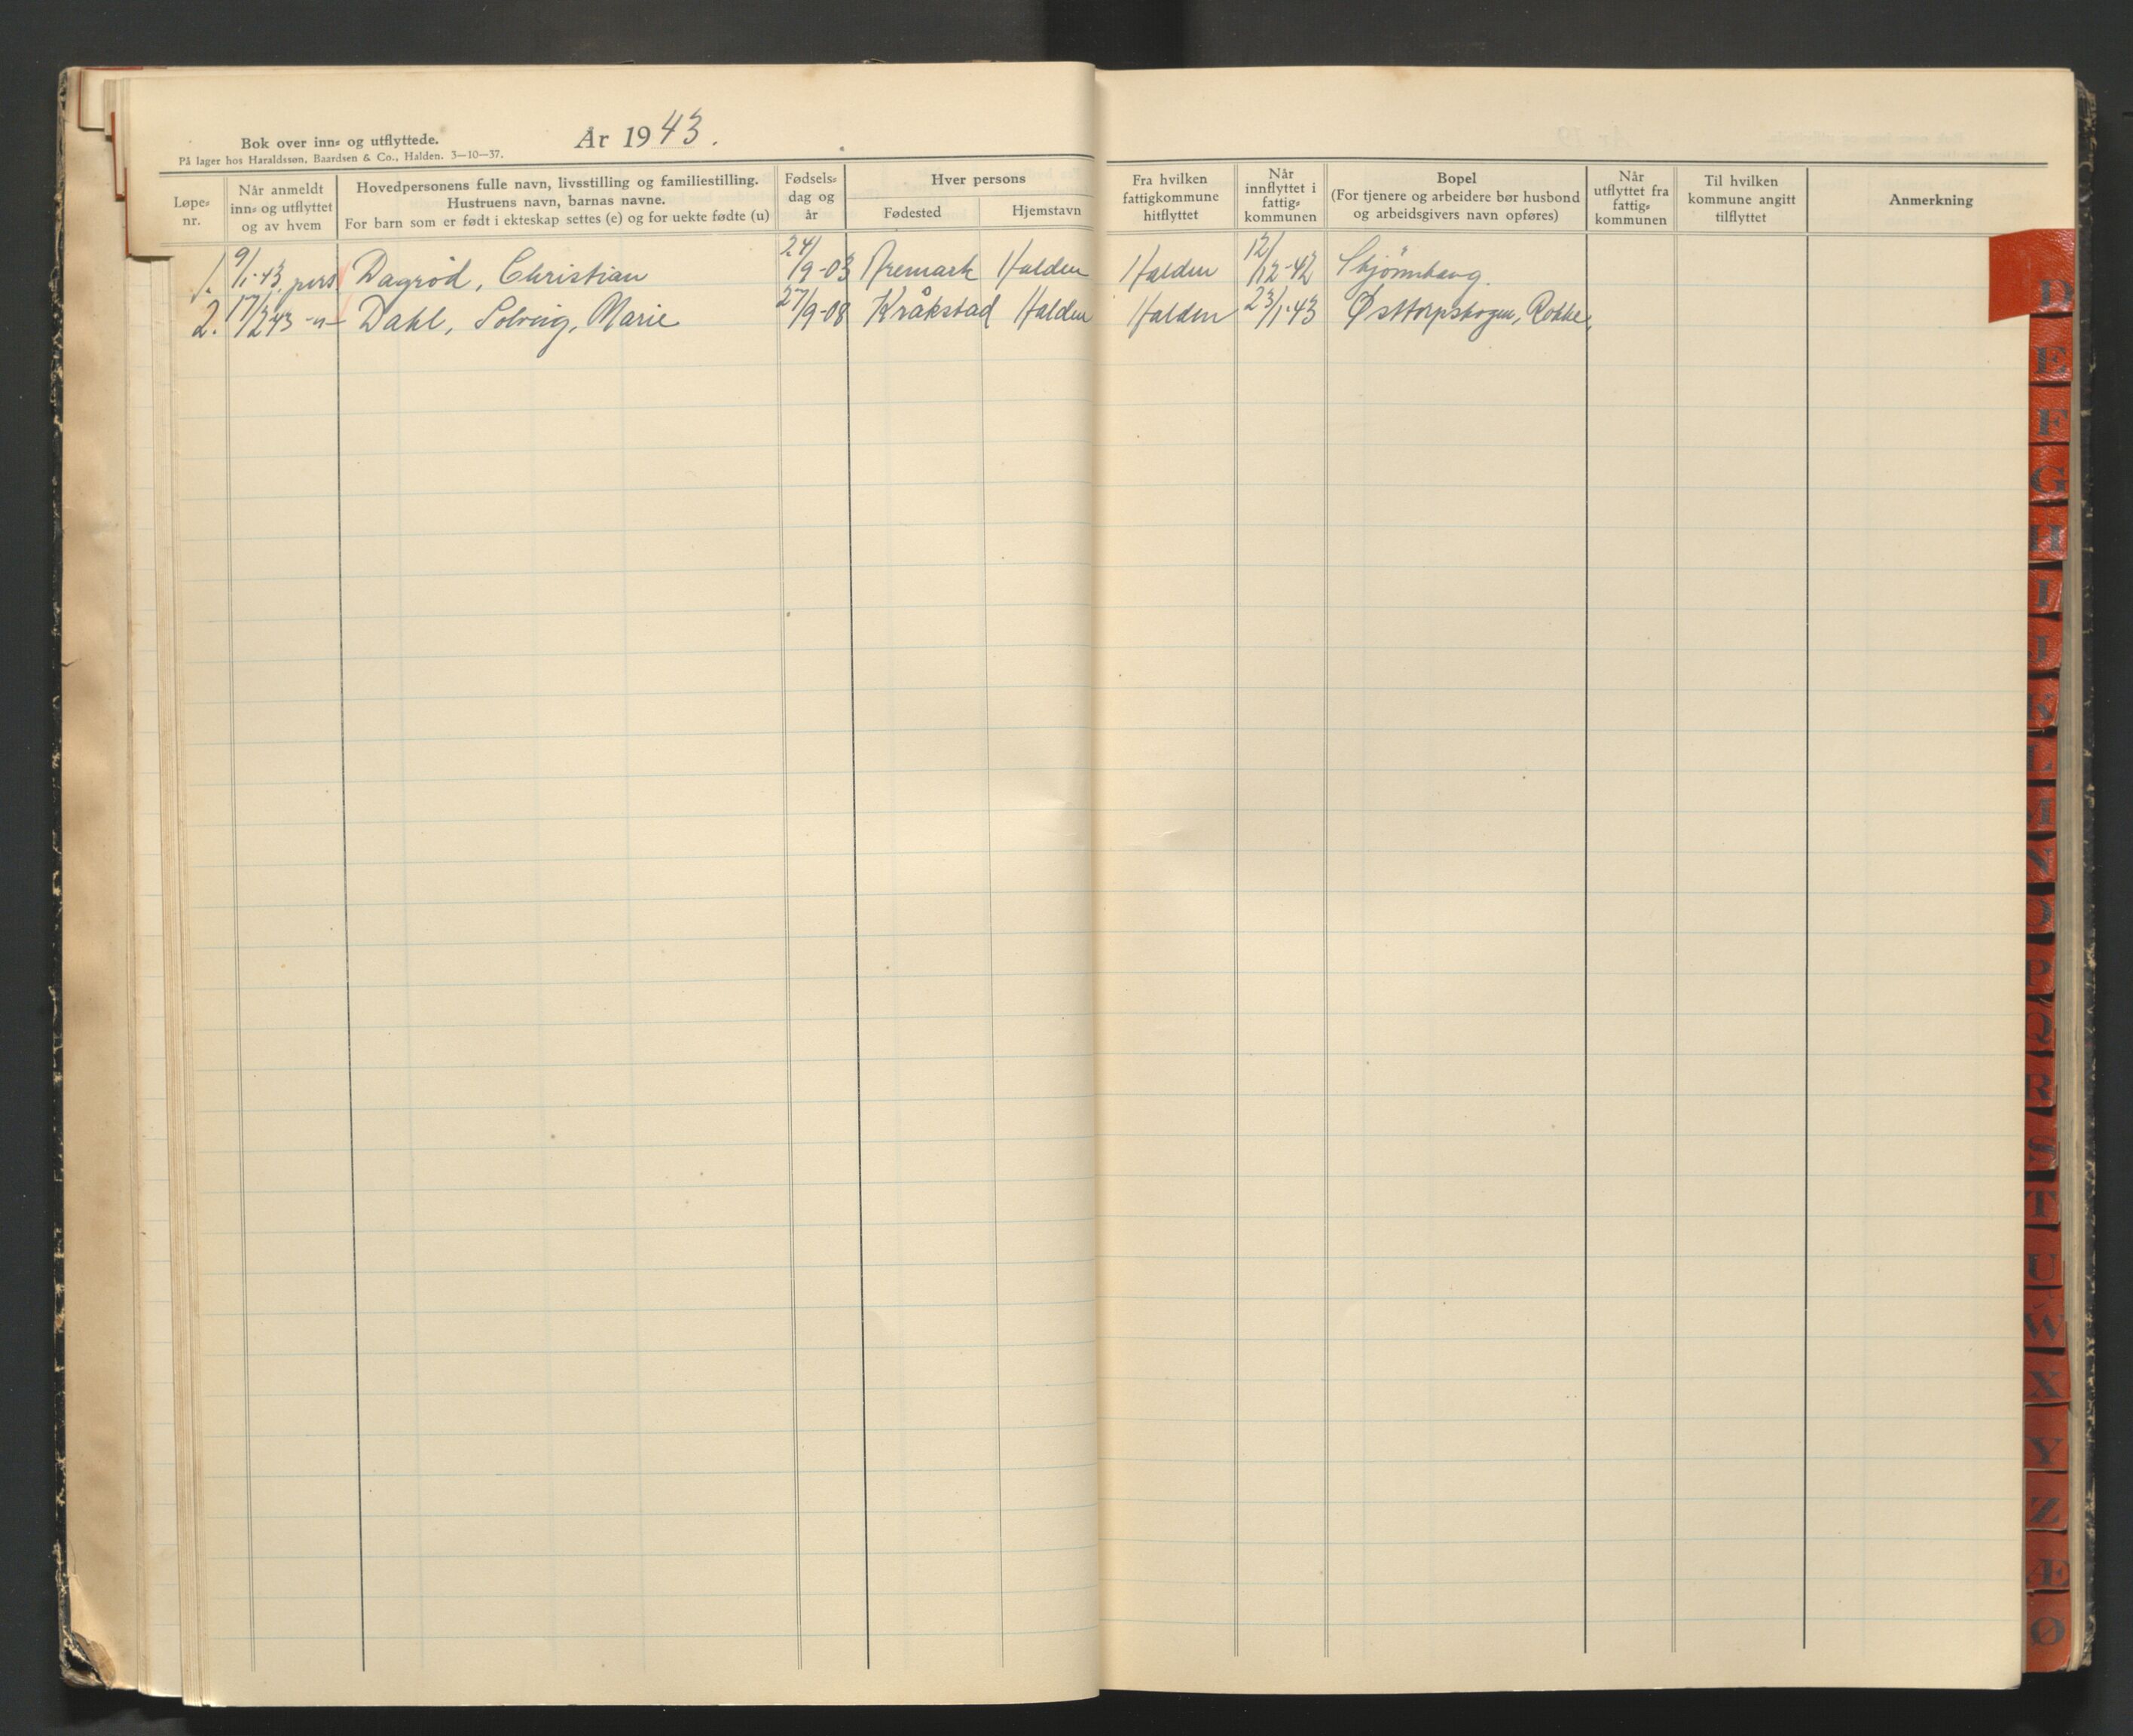 Bok over inn- og utflyttede.
På lager hos Haraldssøn, Baardsen & Co., Halden. 3—10—37.
År 1943.
Løpe-nr.
Når anmeldt inn- og utflyttet og av hvem
Hovedpersonens fulle navn, livsstilling og familiestilling.
Hustruens navn, barnas navne.
For barn som er født i ekteskap settes (e) og for uekte fødte (u)
Fødsels-dag og år
Hver persons
Fødested
Hjemstavn
Fra hvilken fattigkommune hitflyttet
Når innflyttet i fattig-kommunen
Bopel
(For tjenere og arbeidere bør husbond og arbeidsgivers navn opføres)
Når utflyttet fra fattig-kommunen
Til hvilken kommune angitt tilflyttet
Anmerkning
1. 9/1-43 pers. Dagrød, Christian 24/9-03 Aremark Halden Halden 12/12-42 Skjønnhaug.
2. 17/2 43 -"- Dahl, Solveig, Marie 27/9-08 Kråkstad Halden Halden 23/1-43 Østtorpskogen, Rokke.
D
E
F
G
H
I
K
L
M
N
O
P
Q
R
S
T
U
W
X
Y
Z
Æ
Ø